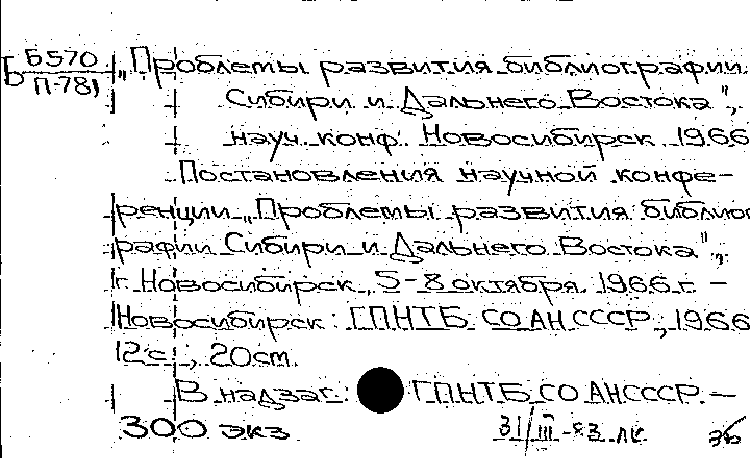 Б Б570 „Проблемы развития библиографии
П-781 Сибири и Дальнего Востока",
науч. конф. Новосибирск. 1966
Постановления научной конфе-
ренции „Проблемы развития библиог
рафии Сибири и Дальнего Востока",
г. Новосибирск, 5-8 октября 1966 г. –
Новосибирск: ГПНТБ СО АН СССР, 1966
12 с., 20 cm.
В надзаг.: ГПНТБ СО АН СССР. –
300 экз
31/III-83 лк зб